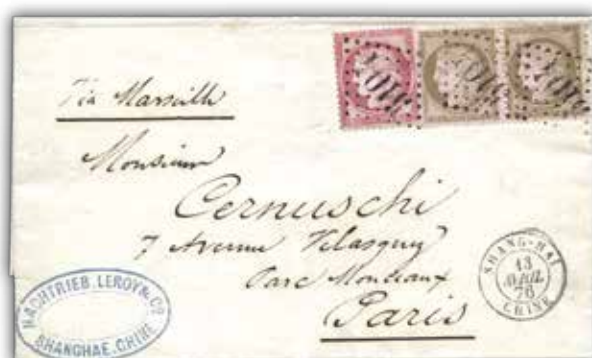 5104
5104
5104
Via Marseille
Monsieur
Cernuschi
7 Avenue Velasquez
Parc Monceaux
Paris
SHANG-HAI
13
AVRIL
76
CHINE
NACHTRIEB, LEROY & Co
SHANGHAE. CHINE